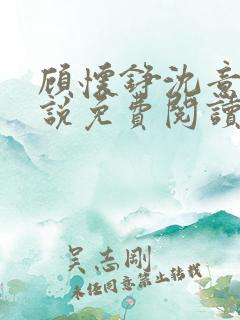 顾懷錚沈意
說免費閱讀
吴志剛
未经同意禁止转载